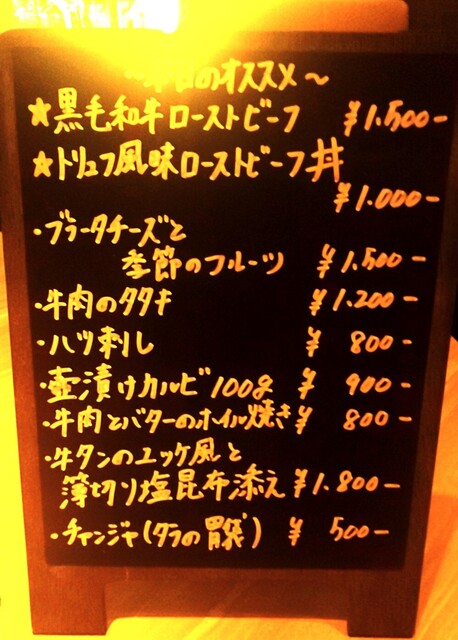 〜本日のオススメ〜
★黒毛和牛ローストビーフ ¥1.500-
★トリュフ風味ローストビーフ丼
¥1.000-
・ブラータチーズと
季節のフルーツ ¥1.500-
・牛肉のタタキ ¥1.200-
・ハツ刺し ¥ 800-
・壺漬けカルビ100g ¥ 900-
・牛肉とバターのホイル焼き ¥ 800-
・牛タンのユッケ風と
薄切り塩昆布添え ¥1.800-
・チャンジャ(タラの胃袋) ¥ 500-